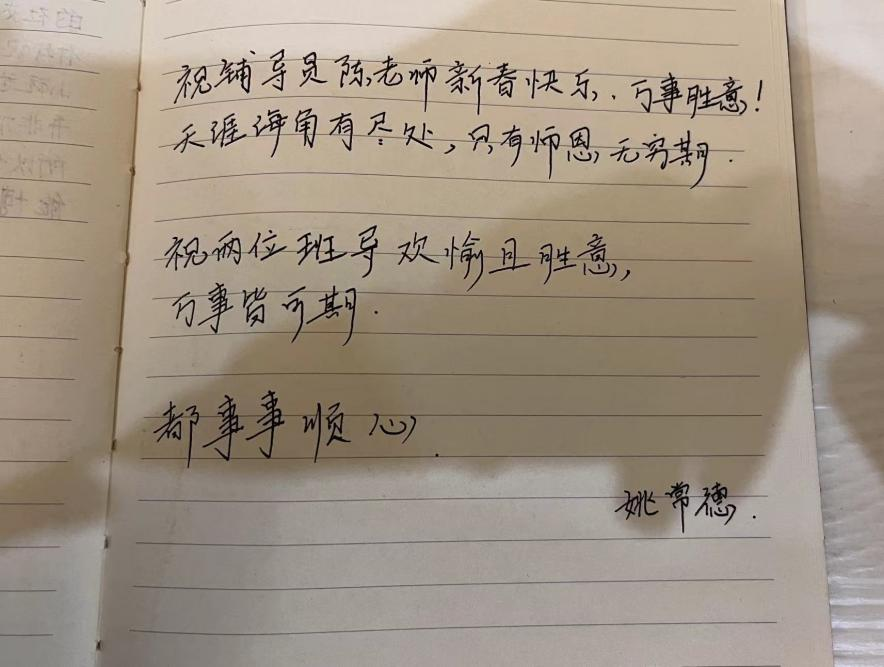 祝辅导员陈老师新春快乐,万事胜意!
天涯海角有尽处,只有师恩无穷期.
祝两位班导欢愉且胜意,
万事皆可期.
都事事顺心.
姚常德.